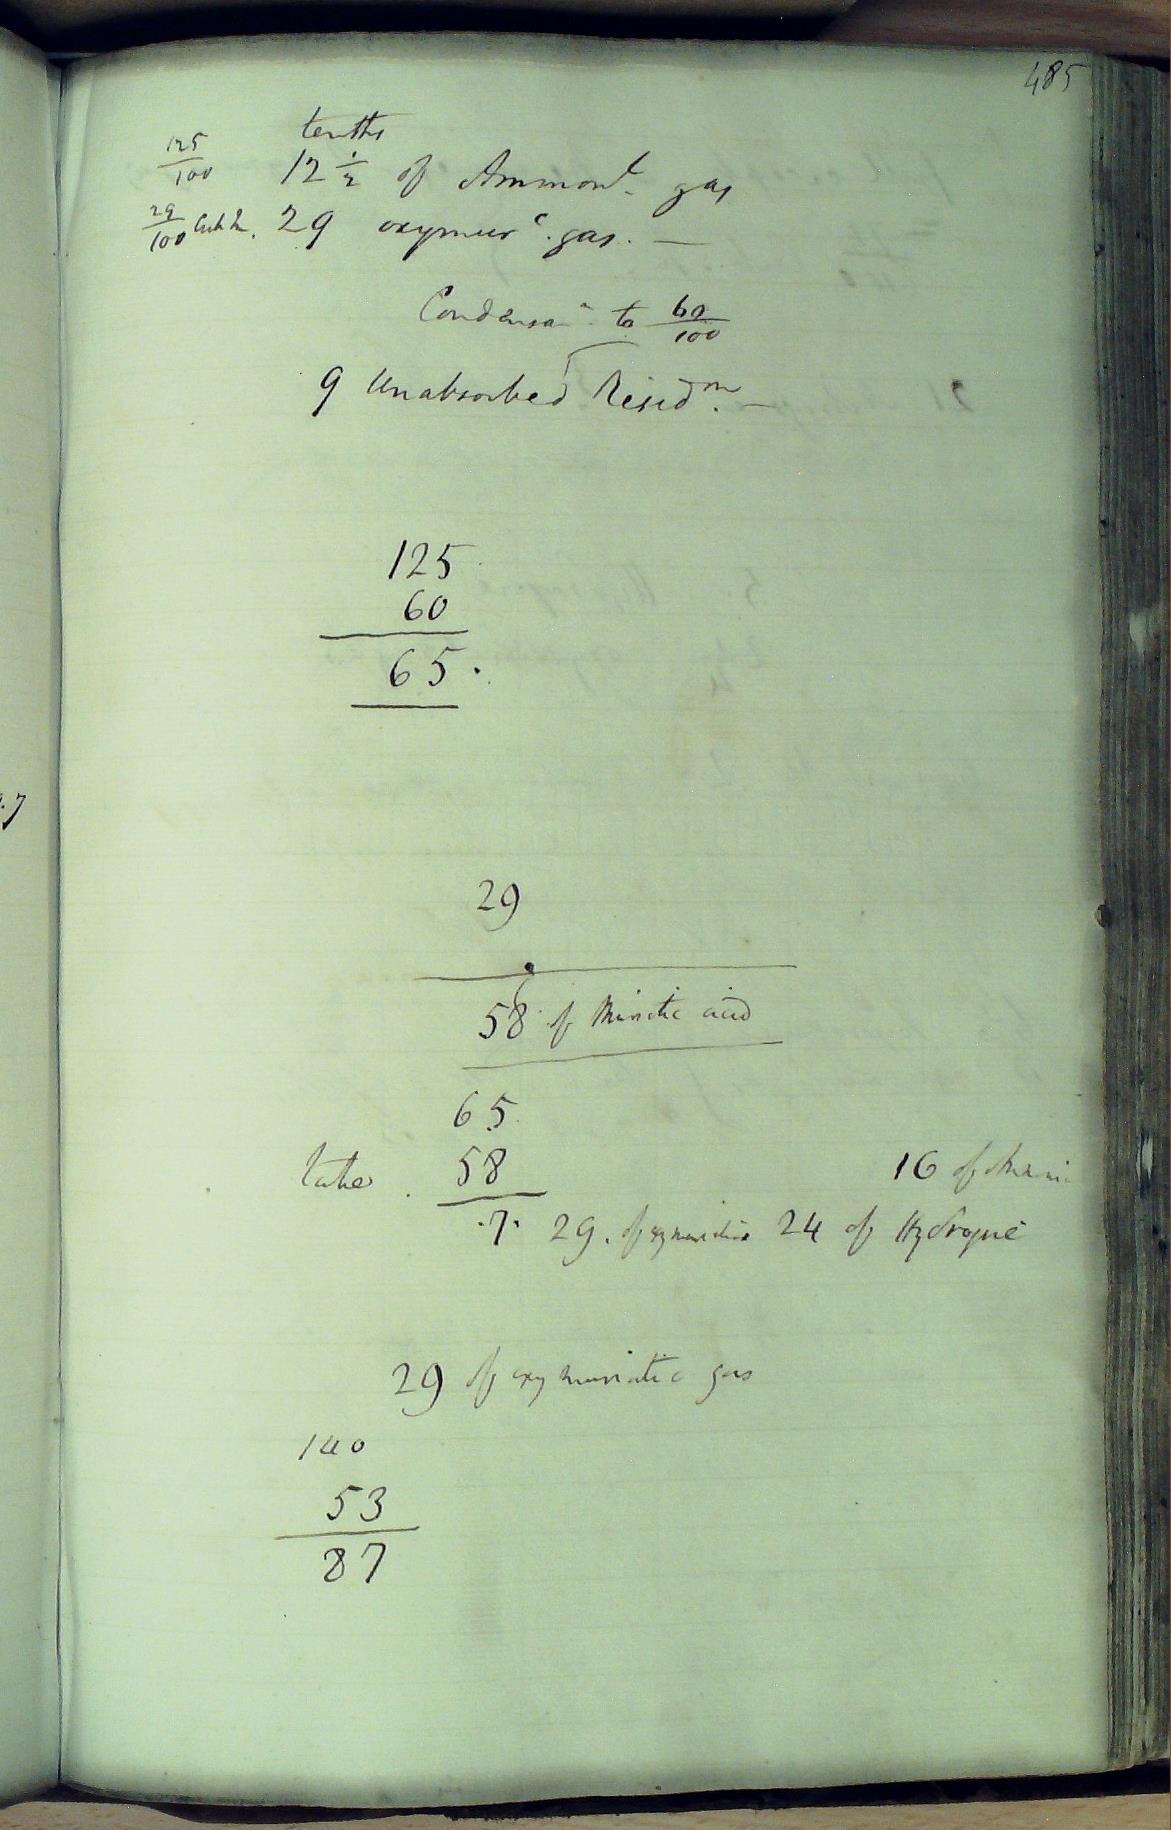 485
tenths
125/100 12 1/2 of Ammonl gas
29/100 Cub In. 29 oxymurc. gas. —
Condensan. to 60/100
9 Unabsorbed Residm. —
125
60
65.
29
58 of Muriatic acid
65
take. 58 16 of
.7. 29. of oxymuriatic 24 of Hydrogene
29 of oxymuriatic gas
140
53
87
.7